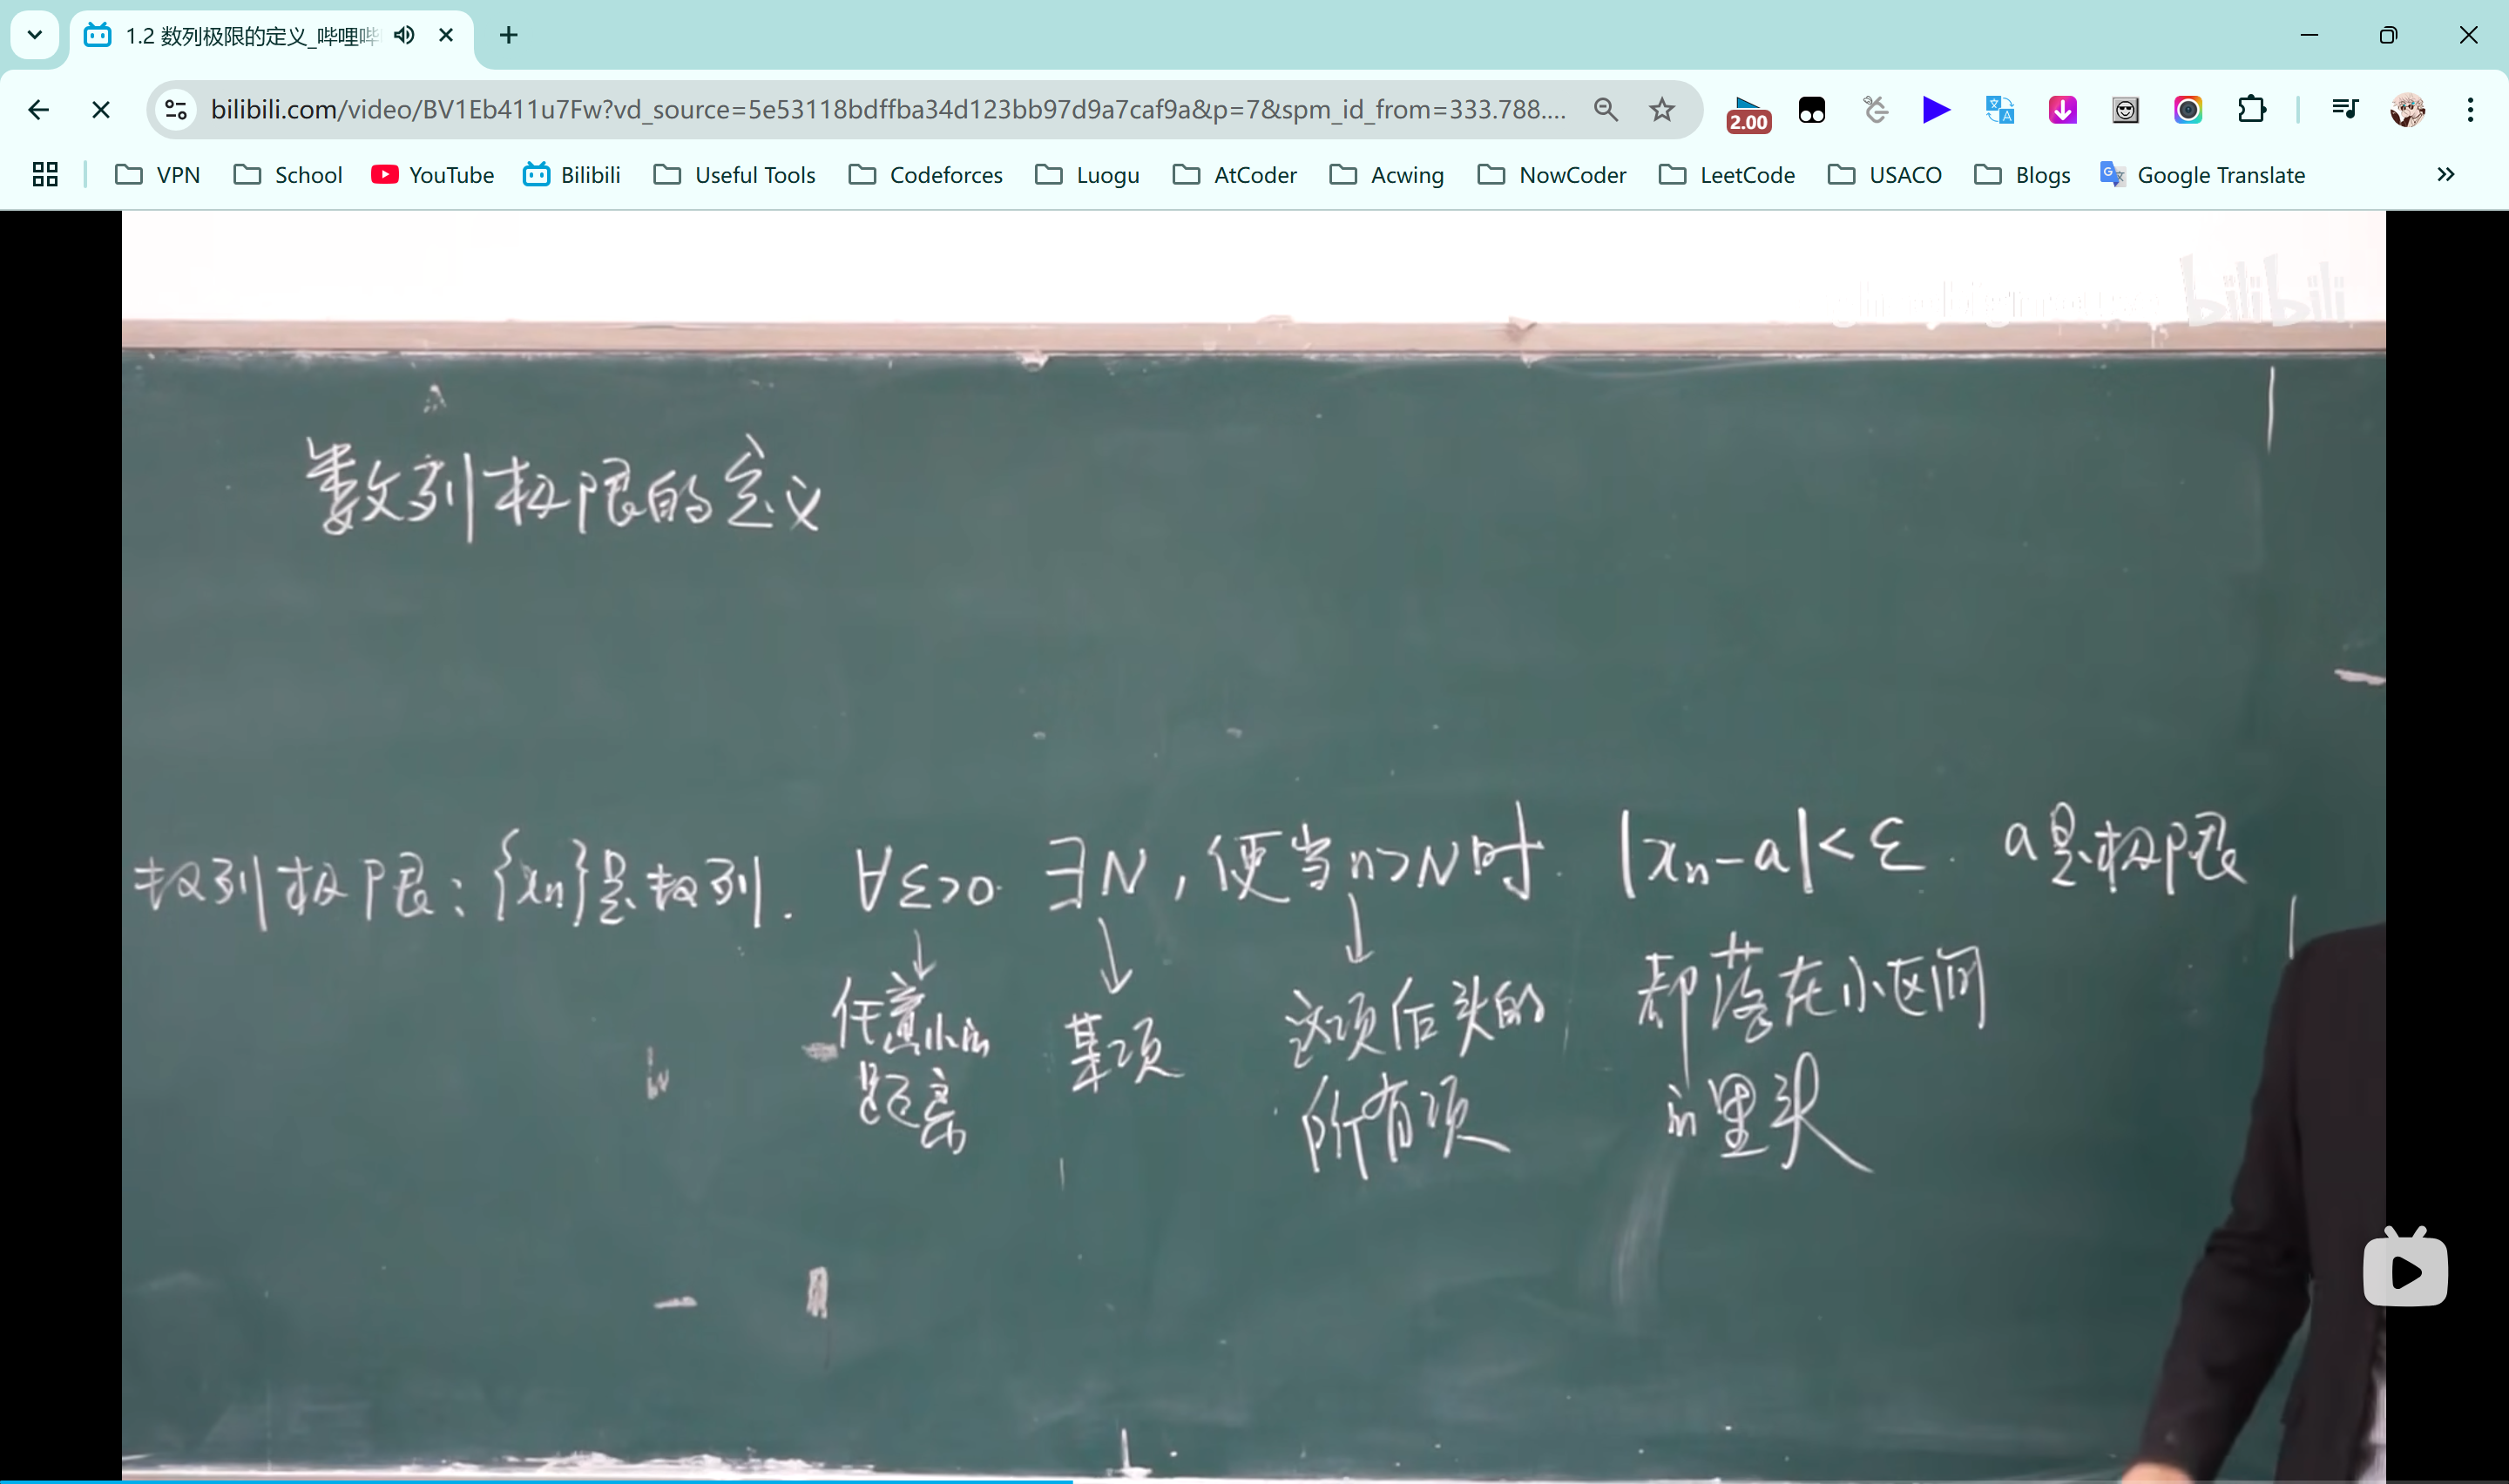 1.2 数列极限的定义_哔哩哔
bilibili.com/video/BV1Eb411u7Fw?vd_source=5e53118bdffba34d123bb97d9a7caf9a&p=7&spm_id_from=333.788....
2.00
VPN School YouTube Bilibili Useful Tools Codeforces Luogu AtCoder Acwing NowCoder LeetCode USACO Blogs Google Translate
bilibili
数列极限的定义
数列极限：{xn}是数列. ∀ε>0 ∃N，使当n>N时. |xn-a|<ε. a是极限
↓ ↓ ↓
任意小的 某项 这项后头的 都落在小区间
距离 所有项 的里头